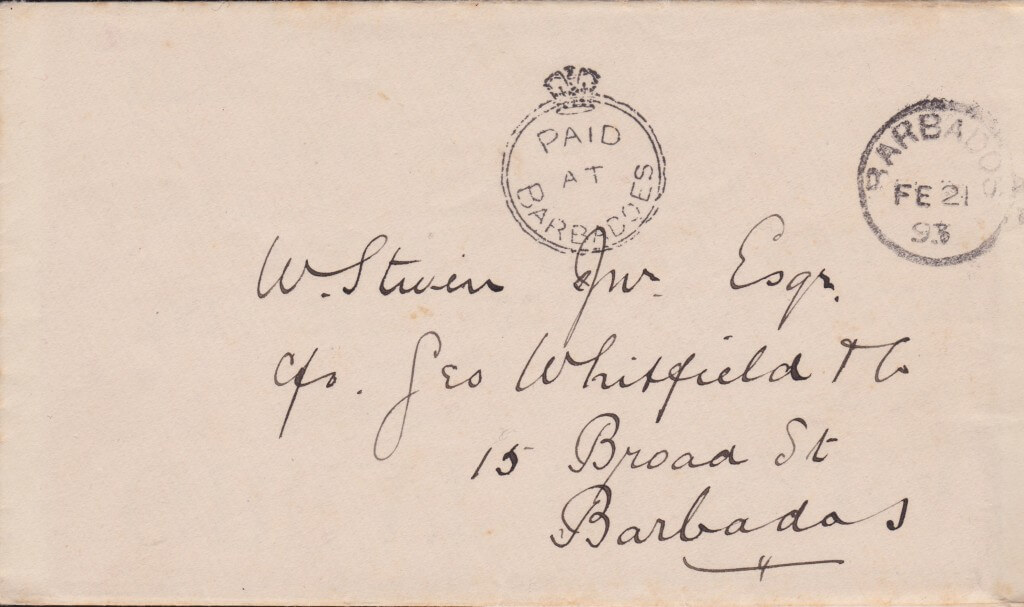 PAID
AT
BARBADOES
BARBADOS
FE 21
93
W. Stuven Jnr. Esqr.
c/o. Geo Whitfield & Co
15 Broad St
Barbados